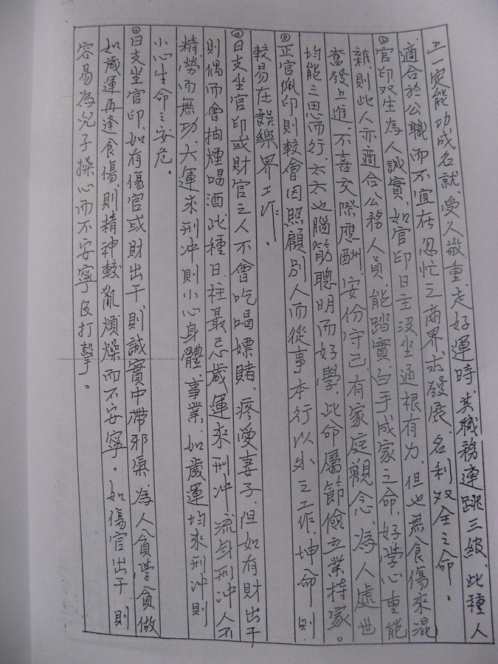 上一定能功成名就受人敬重走好運時其職務連跳三級此種人
適合於公職而不宜在忽忙之商界求發展名利双全之命。
官印双生為人誠實如官印日主沒坐通根有力但也無食傷來混
雜則此人亦適合公務人員能踏實白手成家之命好学心重能
奮發上進不喜交際應酬安份守己有家庭觀念為人處世
均能三思而行太太也腦筋聰明而好學此命屬節儉立業持家。
正官佩印則較會因照顧別人而從事本行以外之工作坤命則
較易在娛樂界工作。
日支坐官印或財官之人不會吃喝嫖賭疼愛妻子但如有財出干
則偶而會抽煙喝酒此種日柱最忌歲運來刑冲流年刑冲人不
精勞而無功大運來刑冲則小心身體事業如歲運均來刑冲則
小心生命之安危。
日支坐官印如有傷官或財出干則誠實中帶邪氣為人貪學貪做
如歲運再逢食傷則精神較亂煩燥而不安寧。如傷官出干則
容易為兒子操心而不安寧及打擊。